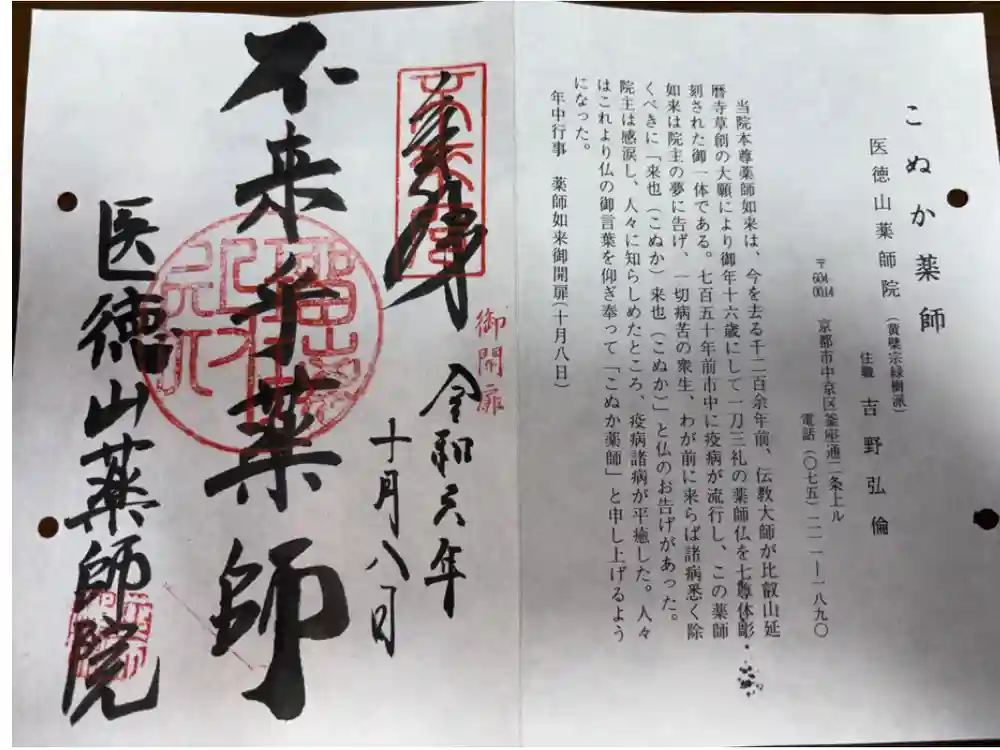 こぬか薬師
医徳山薬師院(黄檗宗緑樹派)
住職 吉野弘倫
〒604-0014 京都市中京区釜座通二条上ル
電話(〇七五)二一一―一八九〇
当院本尊薬師如来は、今を去る千二百余年前、伝教大師が比叡山延
暦寺草創の大願により御年十六歳にして一刀三礼の薬師仏を七尊体彫
刻された御一体である。七百五十年前市中に疫病が流行し、この薬師
如来は院主の夢に告げ、一切病苦の衆生、わが前に来らば諸病悉く除
くべきに「来也(こぬか)来也(こぬか)」と仏のお告げがあった。
院主は感涙し、人々に知らしめたところ、疫病諸病が平癒した。人々
はこれより仏の御言葉を仰ぎ奉って「こぬか薬師」と申し上げるよう
になった。
年中行事 薬師如来御開扉(十月八日)
奉拝
御開扉
令和六年
十月八日
不来乎薬師
医徳山薬師院